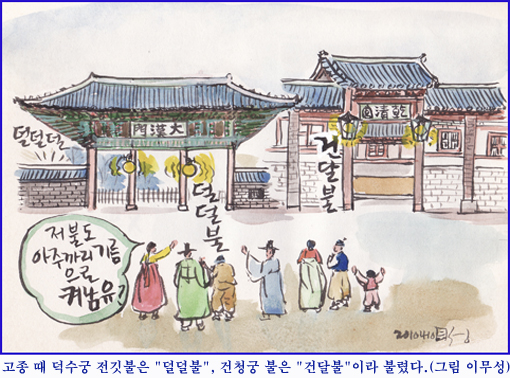 덜덜덜
大漢門
덜덜불
乾清宮
건달불
저불도
아주까리기름
으로
켜남유?
고종 때 덕수궁 전깃불은 "덜덜불", 건청궁 불은 "건달불"이라 불렀다.(그림 이무성)